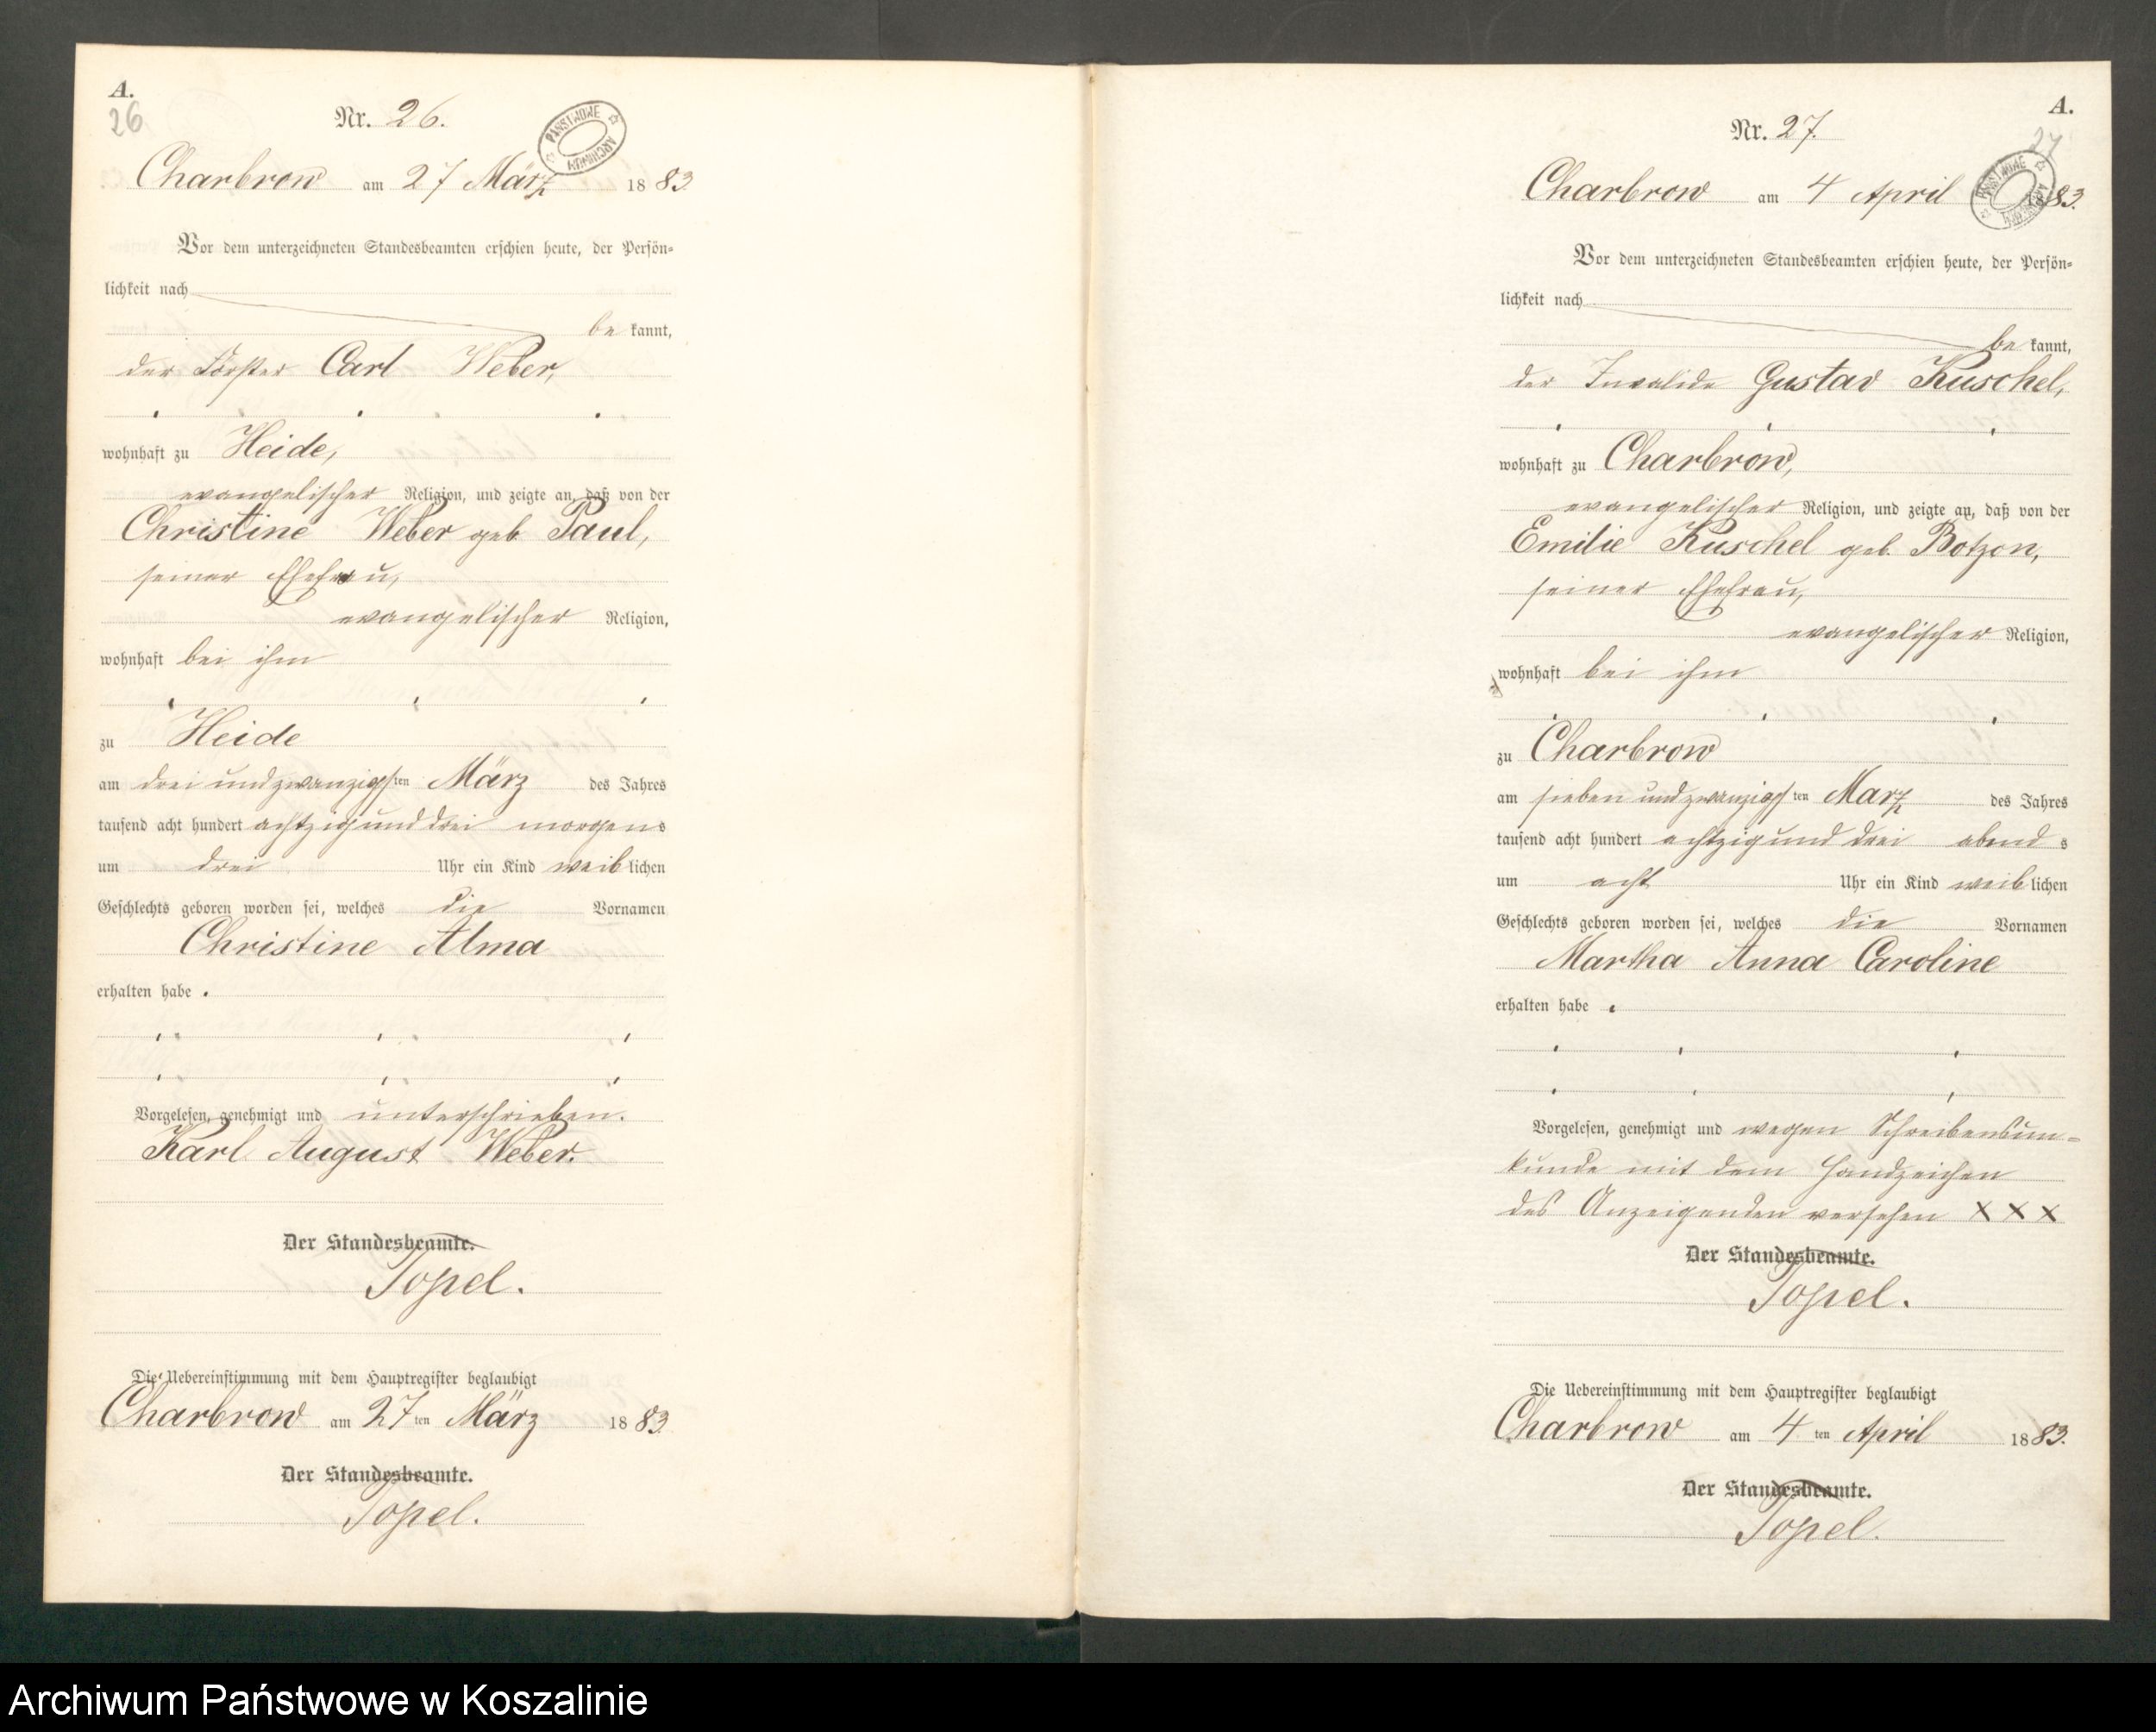 A.
26
Nr. 26.
PAŃSTWOWE
ARCHIWUM
Charbrow am 27 März 1883
Vor dem unterzeichneten Standesbeamten erschien heute, der Persön-
lichkeit nach
be kannt,
der Förster Carl Weber,
wohnhaft zu Heide,
evangelischer Religion, und zeigte an, daß von der
Christine Weber geb Paul,
seiner Ehefrau,
evangelischer Religion,
wohnhaft bei ihm
zu Heide
am drei und zwanzigsten März des Jahres
tausend acht hundert achtzig und drei morgens
um drei Uhr ein Kind weiblichen
Geschlechts geboren worden sei, welches die Vornamen
Christine Alma
erhalten habe.
Vorgelesen, genehmigt und unterschrieben.
Karl August Weber.
Der Standesbeamte.
Topel.
Die Uebereinstimmung mit dem Hauptregister beglaubigt
Charbrow am 27ten März 1883.
Der Standesbeamte.
Topel.
A.
27
Nr. 27.
PAŃSTWOWE
ARCHIWUM
Charbrow am 4 April 1883.
Vor dem unterzeichneten Standesbeamten erschien heute, der Persön-
lichkeit nach
be kannt,
der Invalide Gustav Kuschel,
wohnhaft zu Charbrow,
evangelischer Religion, und zeigte an, daß von der
Emilie Kuschel geb. Botzon,
seiner Ehefrau,
evangelischer Religion,
wohnhaft bei ihm
zu Charbrow
am sieben und zwanzigsten März des Jahres
tausend acht hundert achtzig und drei abends
um acht Uhr ein Kind weiblichen
Geschlechts geboren worden sei, welches die Vornamen
Martha Anna Caroline
erhalten habe.
Vorgelesen, genehmigt und wegen Schreibensun-
kunde mit dem Handzeichen
des Anzeigenden versehen XXX
Der Standesbeamte.
Topel.
Die Uebereinstimmung mit dem Hauptregister beglaubigt
Charbrow am 4ten April 1883.
Der Standesbeamte.
Topel.
Archiwum Państwowe w Koszalinie